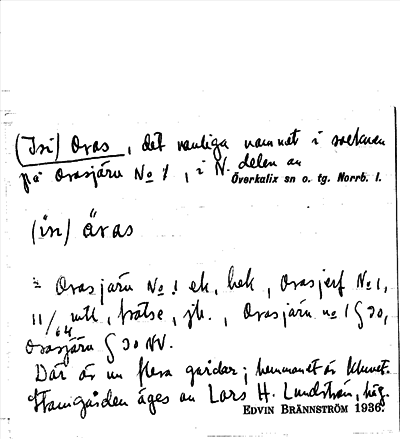 (Isi) Oras, det vanliga namnet i socknen
på Orasjärv No 1, i N. delen av
Överkalix sn o. tg. Norrb. l.
(in) åras
= Orasjärv No 1 ek, hek, Orasjerf No 1,
11/64 mtl, frälse, jk., Orasjärv no 1 § 30,
Orasjärv § 30 NV.
Där är nu flera gårdar; hemmanet är kluvet.
Hamgården äges av Lars H. Lundström,
EDVIN BRÄNNSTRÖM 1936.